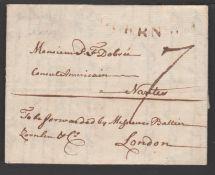 7
Monsieur P. F. Dobrée
Consul Americain
Nantes
To be forwarded by Messieurs Battier
Zornlin & Co
London